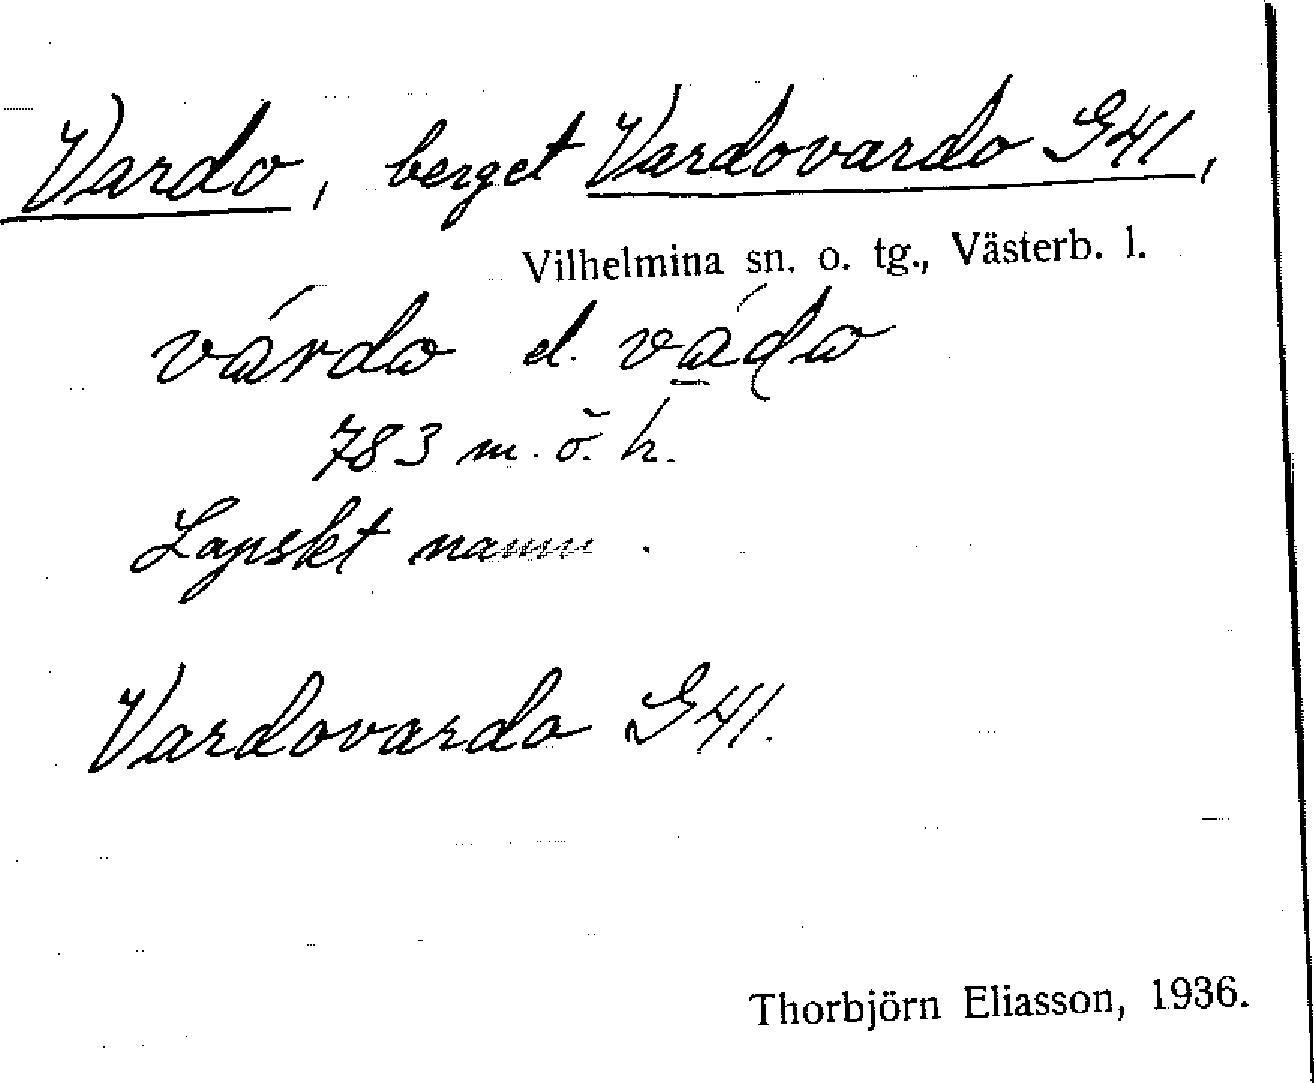 Vardo, berget Vardovardo G41,
Vilhelmina sn. o. tg., Västerb. l.
várdω el. vádω
783 m. ö. h.
Lapskt namn.
Vardovardo G41.
Thorbjörn Eliasson, 1936.